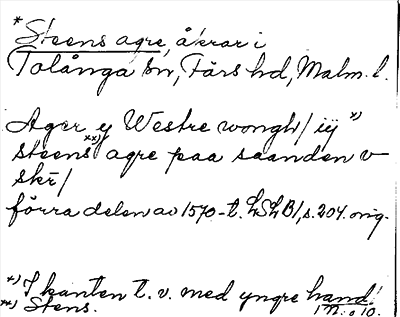 * Steens agre, åkrar i
Tolånga sn, Färs hd, Malm. l.
Ager y Westre wongh/ iÿ x)
steens xx) agre paa saanden v-
skř/
förra delen av 1570-t. LSLB1, s. 204. orig.
x) I kanten t. v. med yngre hand.
xx) Stens.